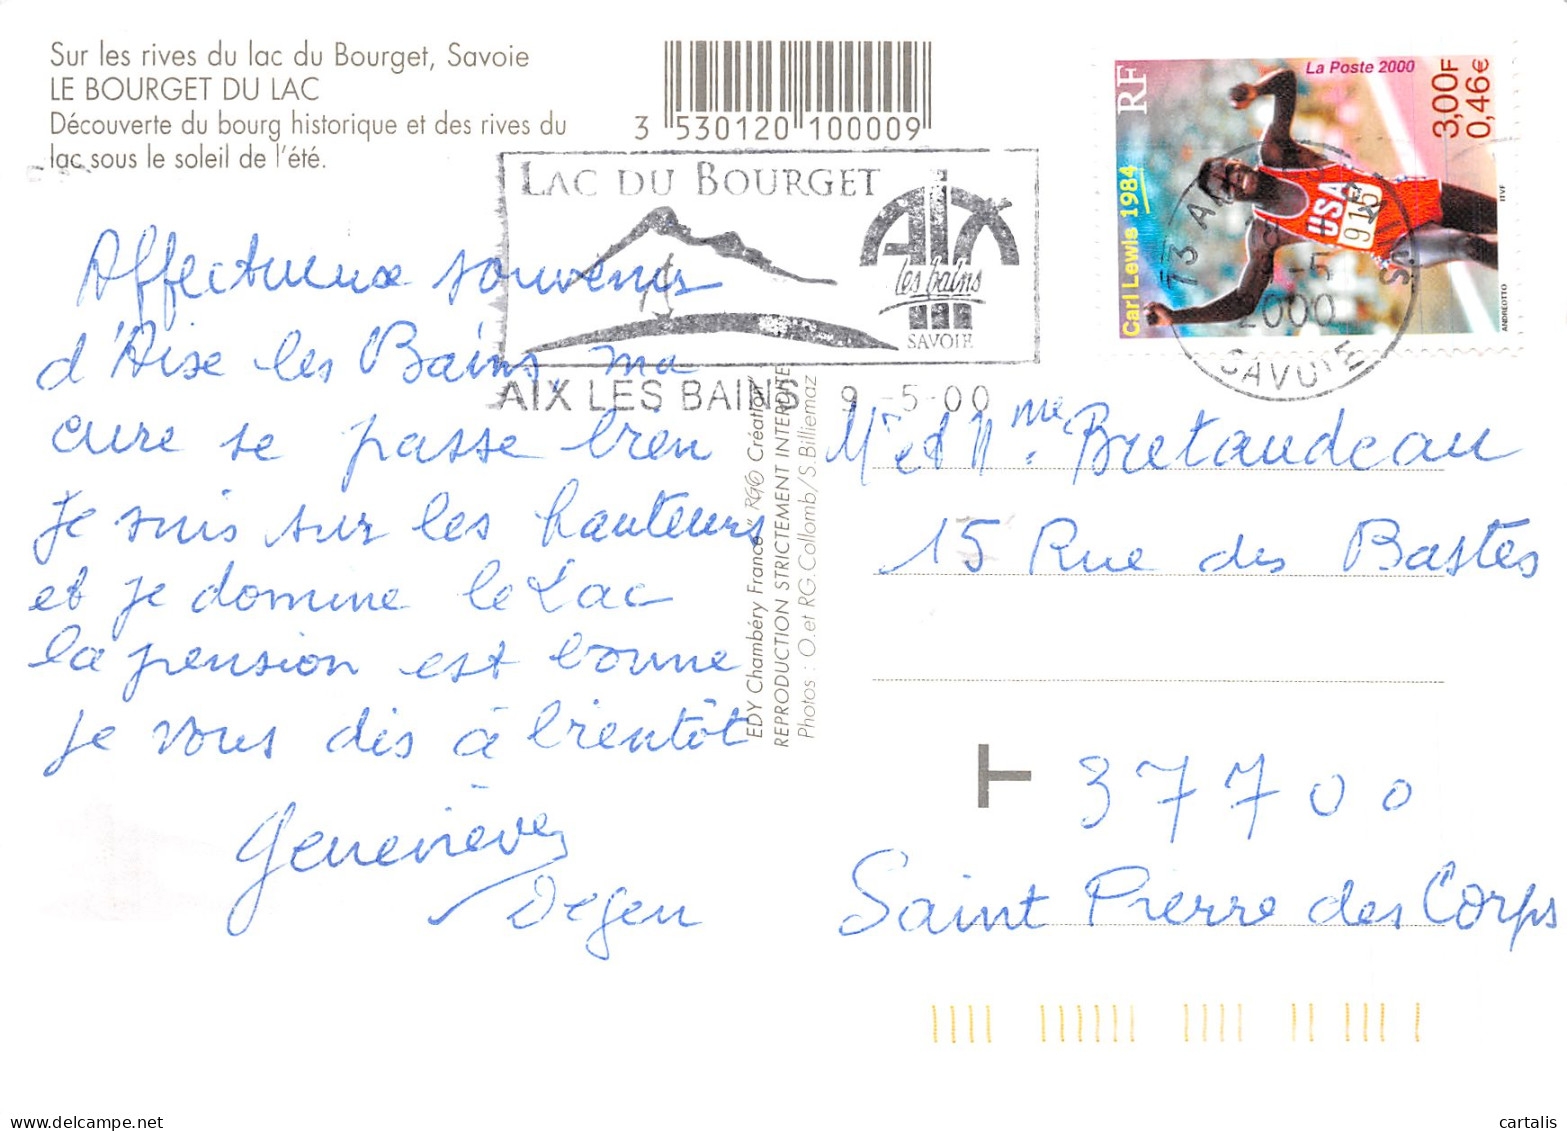 Sur les rives du lac du Bourget, Savoie
LE BOURGET DU LAC
Découverte du bourg historique et des rives du
lac sous le soleil de l'été.
3 530120 100009
LAC DU BOURGET
AIX
les bains
SAVOIE
AIX LES BAINS 9 -5-00
RF
La Poste 2000
3,00F
0,46€
Carl Lewis 1984
USA
915
ITVF
ANDREOTTO
73 AIX
-5
2000
SAVOIE
Affectueux souvenirs
d'Aise les Bains, ma
cure se passe bien
Je suis sur les hauteurs
et je domine le Lac
la pension est bonne
je vous dis à bientôt
Geneviève
Degen
EDY Chambéry France " RGC Création"
REPRODUCTION STRICTEMENT INTERDITE
Photos : O.et RG.Collomb/S.Billiemaz
Mr et Mme Bretaudeau
15 Rue des Bastes
T 37700
Saint Pierre des Corps
www.delcampe.net
cartalis